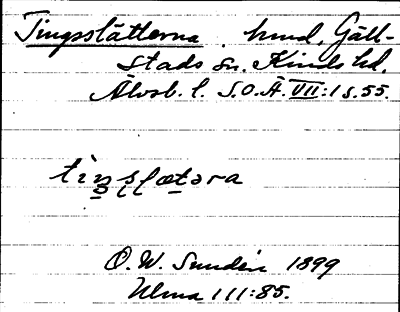 Tingsslätterna. hmd, Gäll-
stads sn. Kinds hd.
Älvsb. l. S.O.Ä. VII:1 s. 55.
tiŋsslætəra
O. W. Sundén 1899
Ulma 111:85.